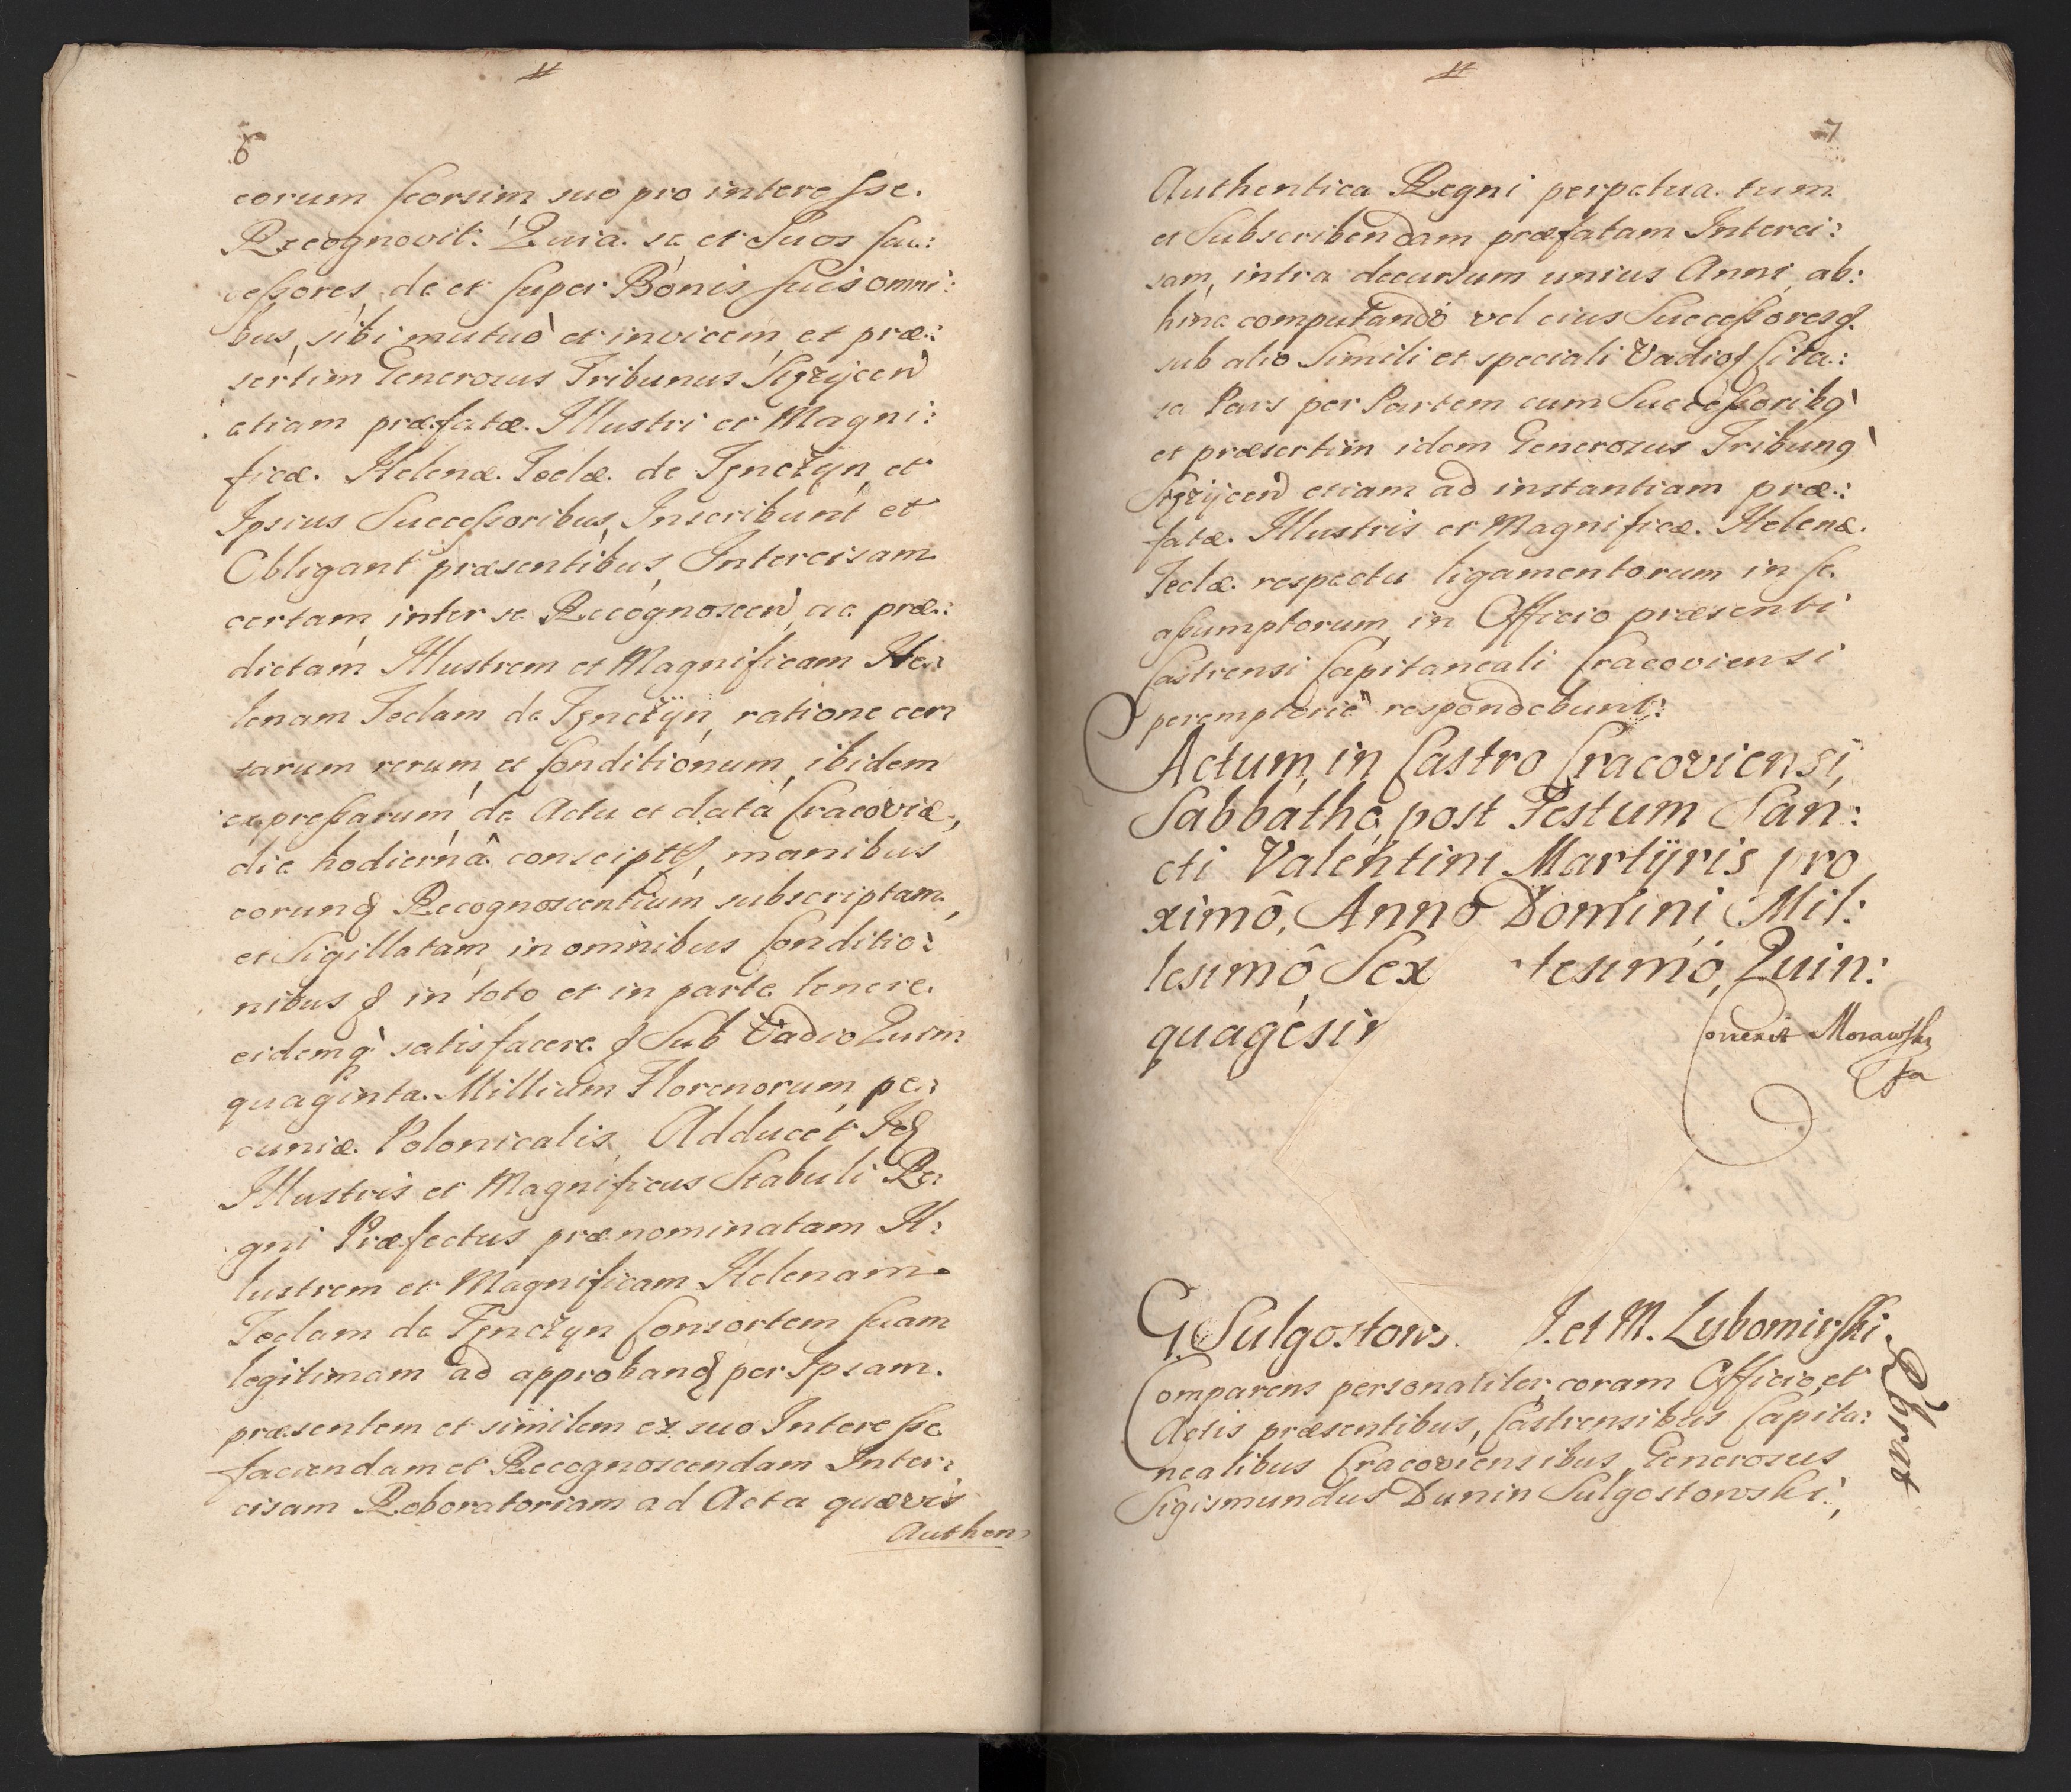 6
eorum seorsim suo pro interesse.
Recognovit: Quia se et Suos Suc:
cessores, de et super Bonis suis omni:
bus, sibi mutuò et invicem, et præ:
sertim Generosus Tribunus Stęzijcen
etiam præfatæ Illustri et Magni:
ficæ. Helenæ. Teclæ. de Tęnczyn, et
Ipsius Successoribus, Inscribunt et
Obligant præsentibus, Intercisam
certam inter se Recognoscen, ac præ:
dictam Illustrem et Magnificam He:
lenam Teclam de Tęnczÿn, ratione cer:
tarum rerum et Conditionum, ibidem
expressarum, de Actu et datâ Cracoviæ,
die hodiernâ conscript, manibus
eorunq Recognoscentium subscriptam,
et Sigillatam, in omnibus Conditio:
nibus q in toto et in parte tenere.
eidemq satisfacere q Sub Vadio Quin:
quaginta Millium Florenorum, pe:
cuniæ Polonicalis. Adducet Idq
Illustris et Magnificus Stabuli Re:
gni Præfectus prænominatam Il:
lustrem et Magnificam Helenam
Teclam de Tęnczyn Consortem suam
legitimam ad approbanq per Ipsam.
præsentem et similem ex suo Interesse
faciendam et Recognoscendam Inter:
cisam Roboratoriam ad Acta quævis
Authen:
7
Authentica Regni perpetua. tum
et Subscribendam præfatam Interci:
sam, intra decursum unius Anni, ab:
hinc computandô vel eius Successoresq.
sub alio Simili et speciali Vadio Cita:
ta Pars per Partem cum Successoribq
et præsertim idem Generosus Tribunq
Stęzijcen etiam ad instantiam præ:
fatæ. Illustris et Magnificæ. Helenæ.
Teclæ. respectu ligamentorum in se.
assumptorum, in Officio præsenti
Castrensi Capitaneali Cracoviensi
peremptoriè respondebunt:
Actum in Castro Cracoviensi,
Sabbathô post Festum San:
cti Valentini Martÿris pro
ximô, Anno Domini Mil:
lesimô Sex tesimô, Quin:
quagésim
Correxit Morawski
G. Sulgostows. I. et M. Lubomirski.
Comparens personaliter coram Officio, et
Actis præsentibus, Castrensibus Capita:
nealibus Cracoviensibus, Generosus
Sigismundus Dunin Sulgostowski,